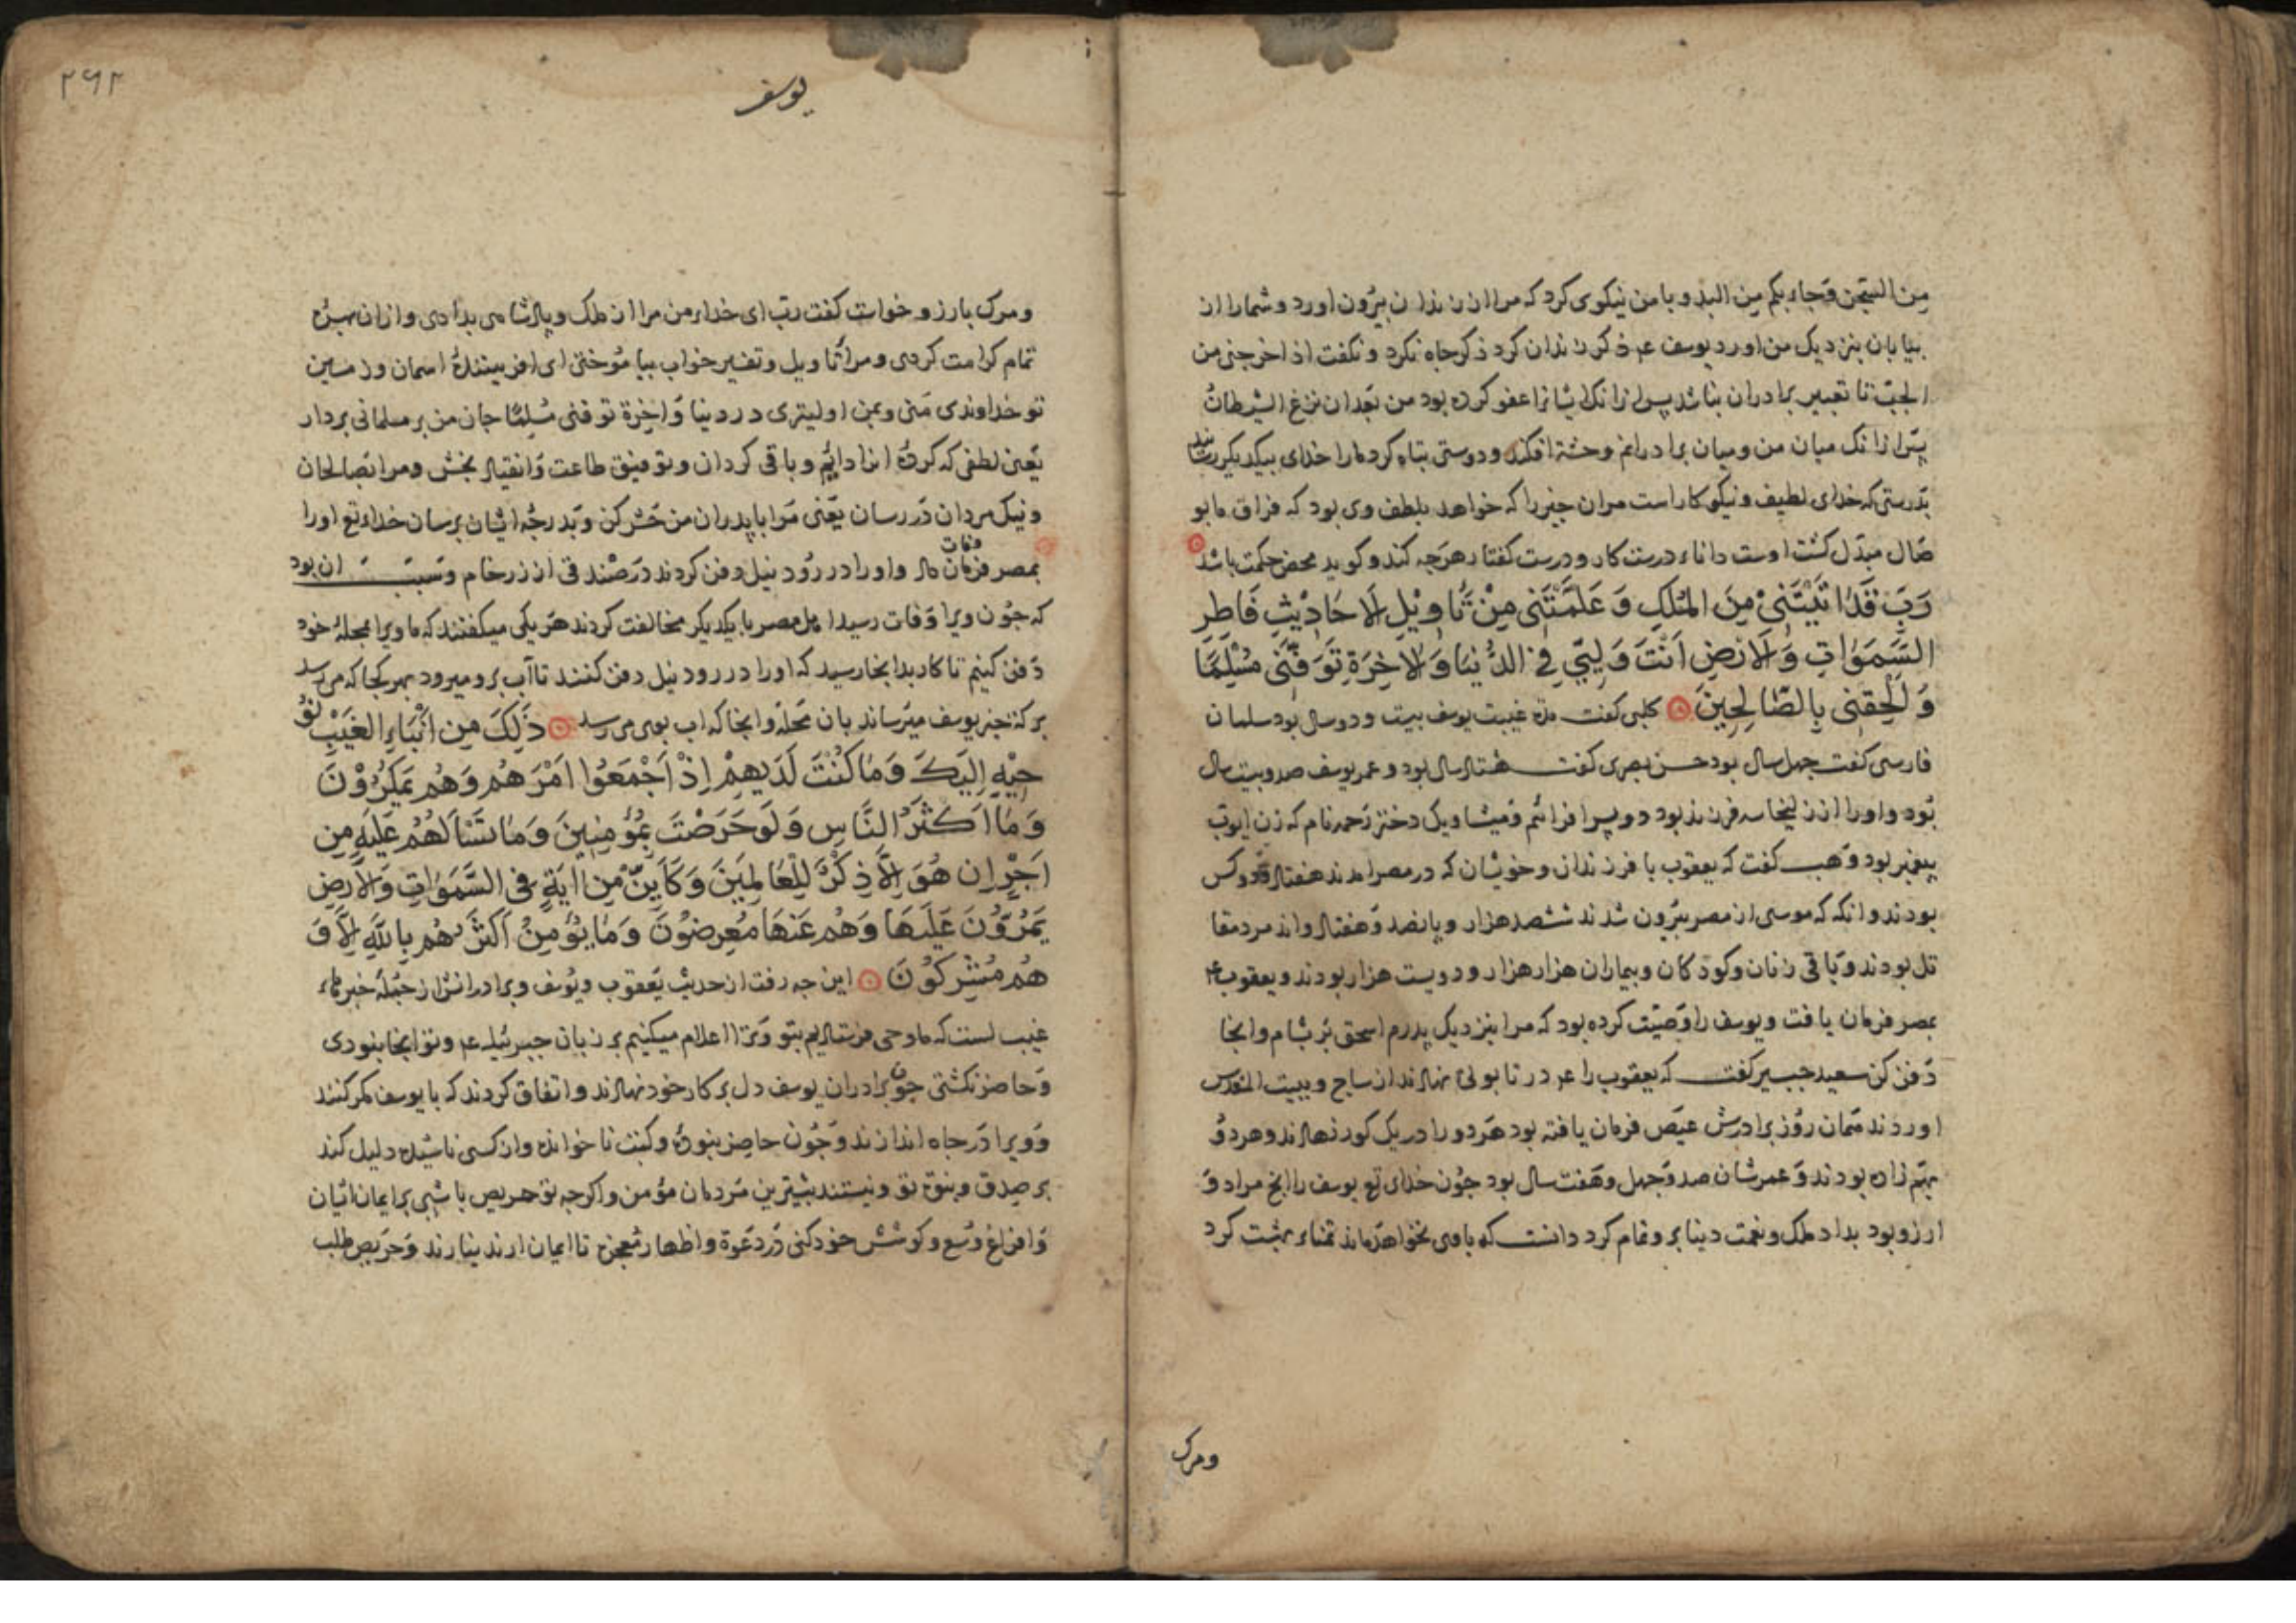 من السجن وجاء بكم من البدو و با من نیکوی کرد که مرا از زندان بیرون اورد و شما را از
بیابان بنزدیک من اورد یوسف عم ذکر زندان کرد ذکر جاه نکرد و نکفت اذ اخرجنی من
الجبّ تا تعبیر برادران نباشد پس ازانک ایشانرا عفو کرده بود من بعد ان نزغ الشیطان
پس ازانک میان من و میان برادرانم وحشة افکند و دوستی تباه کرد مارا خدای بیکدیکر رسانید
بدرستی که خدای لطیف و نیکو کار است مران جیز را که خواهد بلطف وی بود که فراق ما بو
صال مبدل کشت اوست داناء درست کار و درست کفتار هرجه کند و کوید محض حکمت باشد
رَبِّ قَدْ اتَیْتَنیْ مِنَ الْمُلکِ وَ عَلَمَّتَنی مِنْ تَأویْلِ لَاحَادیْثِ فَاطِرِ
السَّمَوَاتِ وَالَارْضِ اَنْتَ وَلِیّی فِی الدُّنیَا وَالاخِرَةِ تَوَفَّنی مُسْلِمًا
وَ لَلْحِقنی بِالصَّالِحِینَ کلبی کفت مدة غیبت یوسف بیست و دو سال بود سلمان
فارسی کفت جهل سال بود حسن بصری کفت هشتاد سال بود و عمر یوسف صد و بیست سال
بود و او را از زلیخا سه فرزند بود دو پسر افرائیم و میشا و یک دختر رحمه نام که زن ایوب
پیغمبر بود وهب کفت که یعقوب با فرزندان و خویشان که در مصر امدند هفتاد و دو کس
بودند و انکه که موسی از مصر بیرون شدند ششصد هزار و پانصد و هفتاد و اند مرد مقا
تل بودند و باقی زنان و کودکان و بیماران هزار هزار و دویست هزار بودند و یعقوب عم
بمصر فرمان یافت و یوسف را وصیّت کرده بود که مرا بنزدیک پدرم اسحق بر بشام و انجا
دفن کن سعید جبیر کفت که یعقوب را عم در تابوتی نهادند از ساج و ببیت المقدس
اوردند همان روز برادرش عیص فرمان یافته بود هردو را در یک کور نهادند و هردو
بهم زاده بودند و عمرشان صد و جهل و هفت سال بود جون خدای تع یوسف را انج مراد و
ارزو بود بداد ملک و نعمت دنیا برو تمام کرد دانست که با وی نخواهد ماند تمناء بهشت کرد
ومرک
یوسف
۲۶۲
ومرک بارزو خواست کفت ربّ ای خداء من مرا از ملک و پادشاهی بدادی و ازان بهره
تمام کرامت کردی و مرا تأویل و تفسیر خواب بیاموختی ای افریننده اسمان و زمین
تو خداوندی منی و بمن اولیتری در دنیا و اخرة توفنی مُسْلِمًا جان من بر مسلمانی بردار
یعنی لطفی که کردهٔ انرا دائم و باقی کردان و توفیق طاعت و انقیاد بخش و مرا بصالحان
و نیک مردان در رسان یعنی مرا با پدران من حشر کن و بدرجهٔ ایشان برسان خداء تع او را
وفات
بمصر فرمان داد و او را در رود نیل دفن کردند در صندوقی از رخام و سبب ان بود
که جون ویرا وفات رسید اهل مصر با یکدیکر مخالفت کردند هر یکی میکفتند که ما ویرا بمحلهٔ خود
دفن کنیم تا کار بدانجا رسید که او را در رود نیل دفن کنند تا آب برو میرود بهر کجا که می رسد
برکة جنبر یوسف میرساند بان محلة و انجا که اب بوی می رسد ذَلِکَ مِن اَنْبَاءِ الغَیْبِ نُوْ
حِیْهِ اِلَیکَ وَمَا کُنْتَ لَدَیهِمْ اِذْ اَجْمَعُوا اَمْرَهُم وَهُم یَمکُرُوْنَ
وَمَا اَکثَرُ النَّاسِ وَلَو حَرَصْتَ بِمُؤمِنینَ وَمَا تَسْاَلَهُمُ عَلَیهِ مِن
اَجْرٍ اِن هُوَ اِلَّا ذِکْرٌ لِلْعَالَمِینَ وَکَاَیِنّ مِن اایَةٍ فی السَّمَوَاتِ وَالاَرضِ
یَمُرُّونَ عَلَیهَا وَهُم عَنْهَا مُعرِضُونَ وَمَا یُؤمِنُ اَکثَرُهُم بِاللّهِ اِلَّا وَ
هُم مُشرِکُونَ این جه رفت از حدیث یعقوب و یوسف و برادرانش از جملهٔ خبرهاء
غیب است که ما وحی فرستادیم بتو و ترا اعلام میکنیم بر زبان جبرئیل عم و تو انجا نبودی
و حاضر نکشتی جون برادران یوسف دل بر کار خود نهادند و اتفاق کردند که با یوسف مکر کنند
و ویرا در جاه اندازند و جون حاضر نبودهٔ و کتب نا خوانده و از کسی ناشنیده دلیل کند
بر صدق و نبوة تو و نیستند بیشترین مردمان مؤمن و اکرجه تو حریص باشی بر ایمان ایشان
و افراغ وسع و کوشش خود کنی در دعوة و اظهار معجزه تا ایمان ارند نیارند و حریص طلب